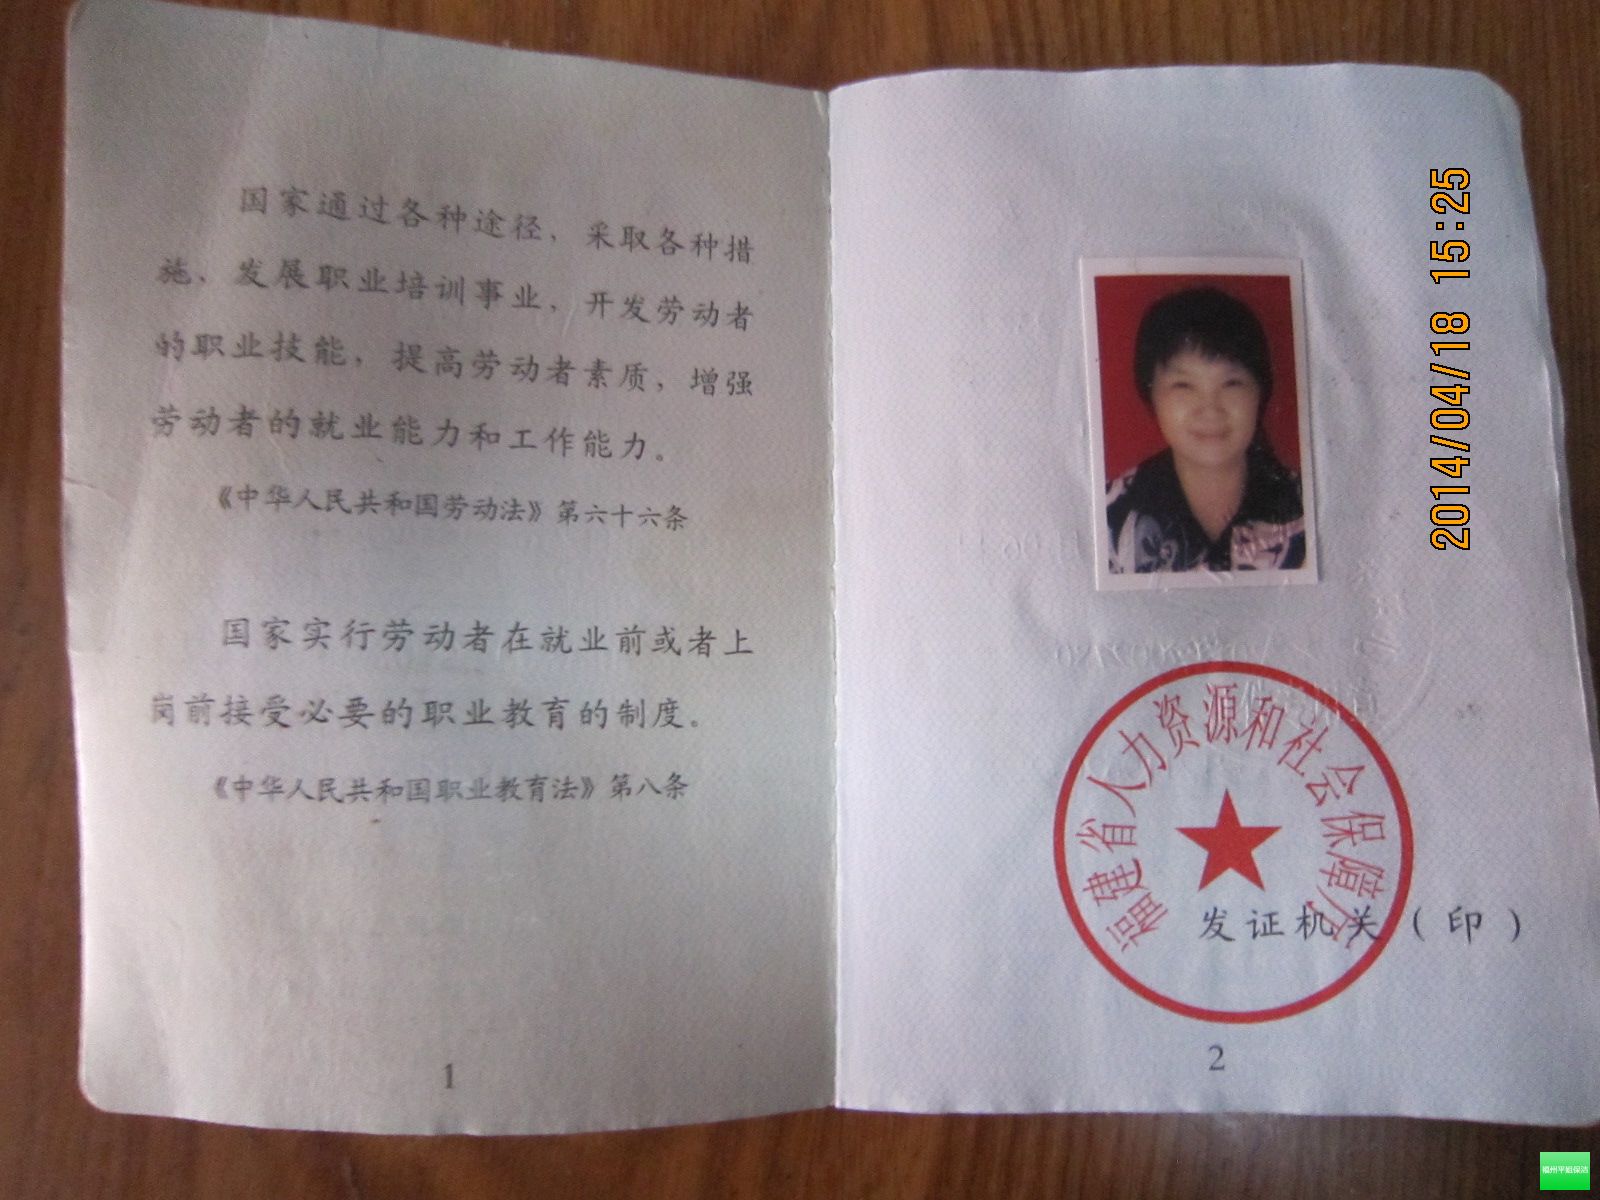 国家通过各种途径，采取各种措
施，发展职业培训事业，开发劳动者
的职业技能，提高劳动者素质，增强
劳动者的就业能力和工作能力。
《中华人民共和国劳动法》第六十六条
国家实行劳动者在就业前或者上
岗前接受必要的职业教育的制度。
《中华人民共和国职业教育法》第八条
1
2014/04/18 15:25
福建省人力资源和社会保障厅
发证机关（印）
2
福州平姐保洁